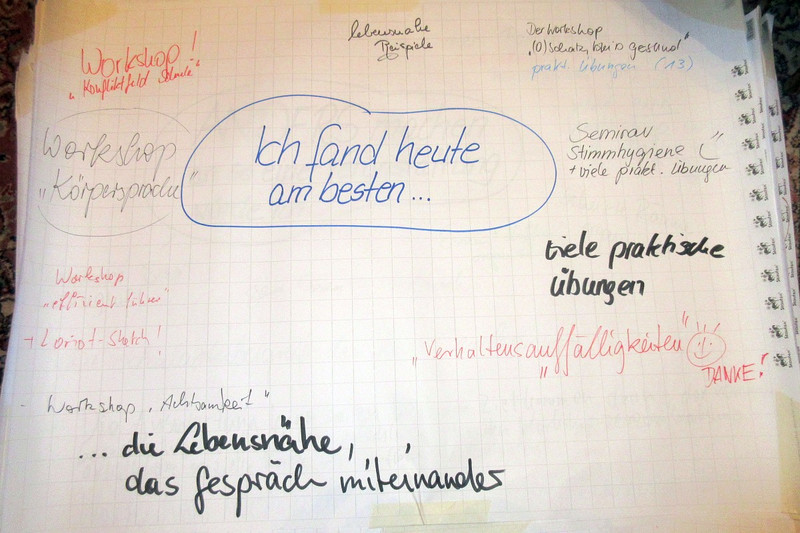 Workshop!
"Konfliktfeld Schule"
lebensnahe
Beispiele
Der Workshop
prakt. Übungen (13)
Workshop
"Körpersprache"
Ich fand heute
am besten...
Seminar
Stimmhygiene
+ viele prakt. Übungen
viele praktische
Übungen
Workshop
"effizient führen"
+ Loriot-Sketch!
"Verhaltensauffälligkeiten"
DANKE!
- Workshop "Achtsamkeit"
... die Lebensnähe,
das Gespräch miteinander